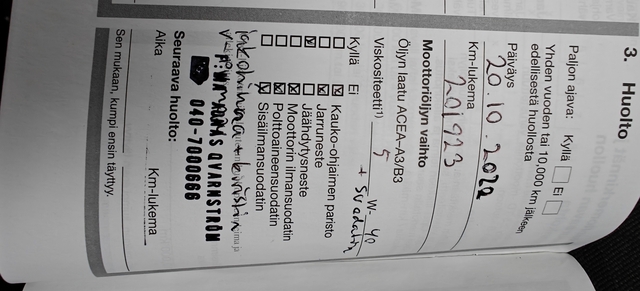 3. Huolto
Paljon ajava: Kyllä Ei
Yhden vuoden tai 10,000 km jälkeen
edellisestä huollosta
Päiväys
20.10.2020
Km-lukema
201923
Moottoriöljyn vaihto
Öljyn laatu ACEA-A3/B3
Viskositeetti¹) 5 W- 40
+ suodatin
Kyllä Ei
Kauko-ohjaimen paristo
Jarruneste
Jäähdytysneste
Moottorin ilmansuodatin
Polttoainesuodatin
Sisäilmansuodatin
QVARNSTRÖM
040-7000666
Seuraava huolto:
Aika Km-lukema
Sen mukaan, kumpi ensin täyttyy.